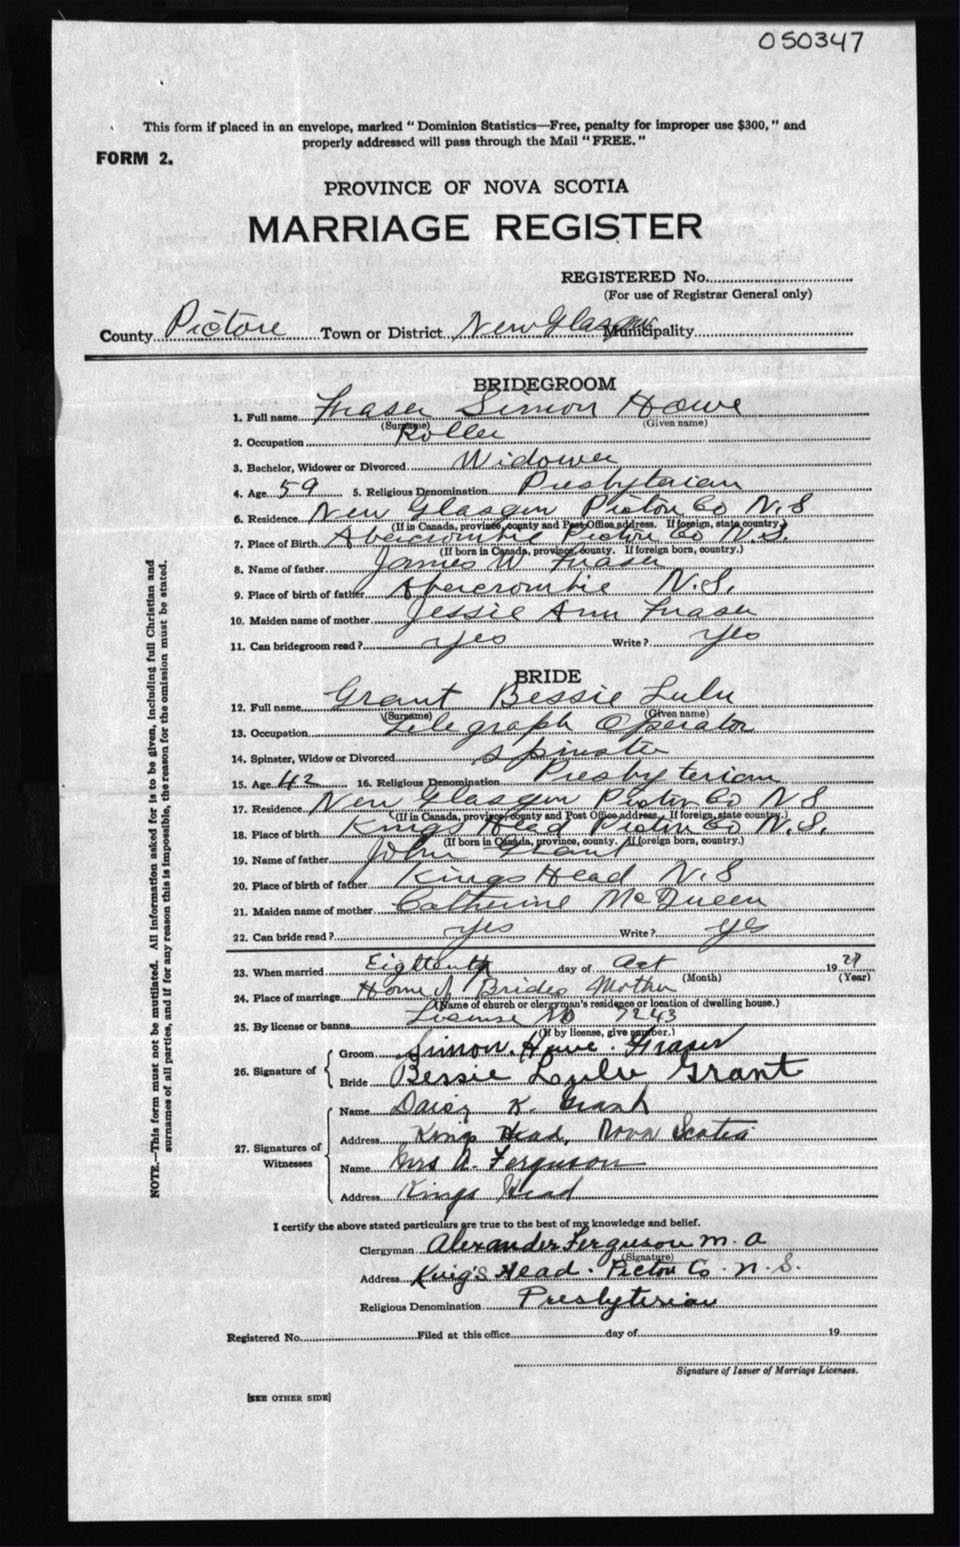 050347
This form if placed in an envelope, marked "Dominion Statistics—Free, penalty for improper use $300," and
properly addressed will pass through the Mail "FREE."
FORM 2.
PROVINCE OF NOVA SCOTIA
MARRIAGE REGISTER
REGISTERED No.
(For use of Registrar General only)
County Pictou Town or District New Glasgow Municipality
BRIDEGROOM
1. Full name Fraser Simon Howe
(Surname) (Given name)
2. Occupation Roller
3. Bachelor, Widower or Divorced Widower
4. Age 59 5. Religious Denomination Presbyterian
6. Residence New Glasgow Pictou Co N.S
(If in Canada, province, county and Post Office address. If foreign, state country.)
7. Place of Birth Abercrombie Pictou Co N.S.
(If born in Canada, province, county. If foreign born, country.)
8. Name of father James W Fraser
9. Place of birth of father Abercrombie N.S.
10. Maiden name of mother Jessie Ann Fraser
11. Can bridegroom read? yes Write? yes
BRIDE
12. Full name Grant Bessie Lulu
(Surname) (Given name)
13. Occupation Telegraph Operator
14. Spinster, Widow or Divorced Spinster
15. Age 42 16. Religious Denomination Presbyterian
17. Residence New Glasgow Pictou Co N S
(If in Canada, province, county and Post Office address. If foreign, state country.)
18. Place of birth Kings Head Pictou Co N.S.
(If born in Canada, province, county. If foreign born, country.)
19. Name of father John Grant
20. Place of birth of father Kings Head N.S
21. Maiden name of mother Catherine McQueen
22. Can bride read? yes Write? yes
23. When married Eighteenth day of Oct 19
(Month) (Year)
24. Place of marriage Home of Brides Mother
(Name of church or clergyman's residence or location of dwelling house.)
25. By license or banns License No 7243
(If by license, give number.)
26. Signature of
Groom Simon Howe Fraser
Bride Bessie Lulu Grant
27. Signatures of Witnesses
Name Daisy K. Grant
Address Kings Head, Nova Scotia
Name Mrs A. Ferguson
Address Kings Head
I certify the above stated particulars are true to the best of my knowledge and belief.
Clergyman Alexander Ferguson M.A
(Signature)
Address King's Head. Pictou Co. N.S.
Religious Denomination Presbyterian
Registered No. Filed at this office day of 19
Signature of Issuer of Marriage Licenses.
[SEE OTHER SIDE]
NOTE.—This form must not be mutilated. All information asked for is to be given, including full Christian and
surnames of all parties, and if for any reason this is impossible, the reason for the omission must be stated.